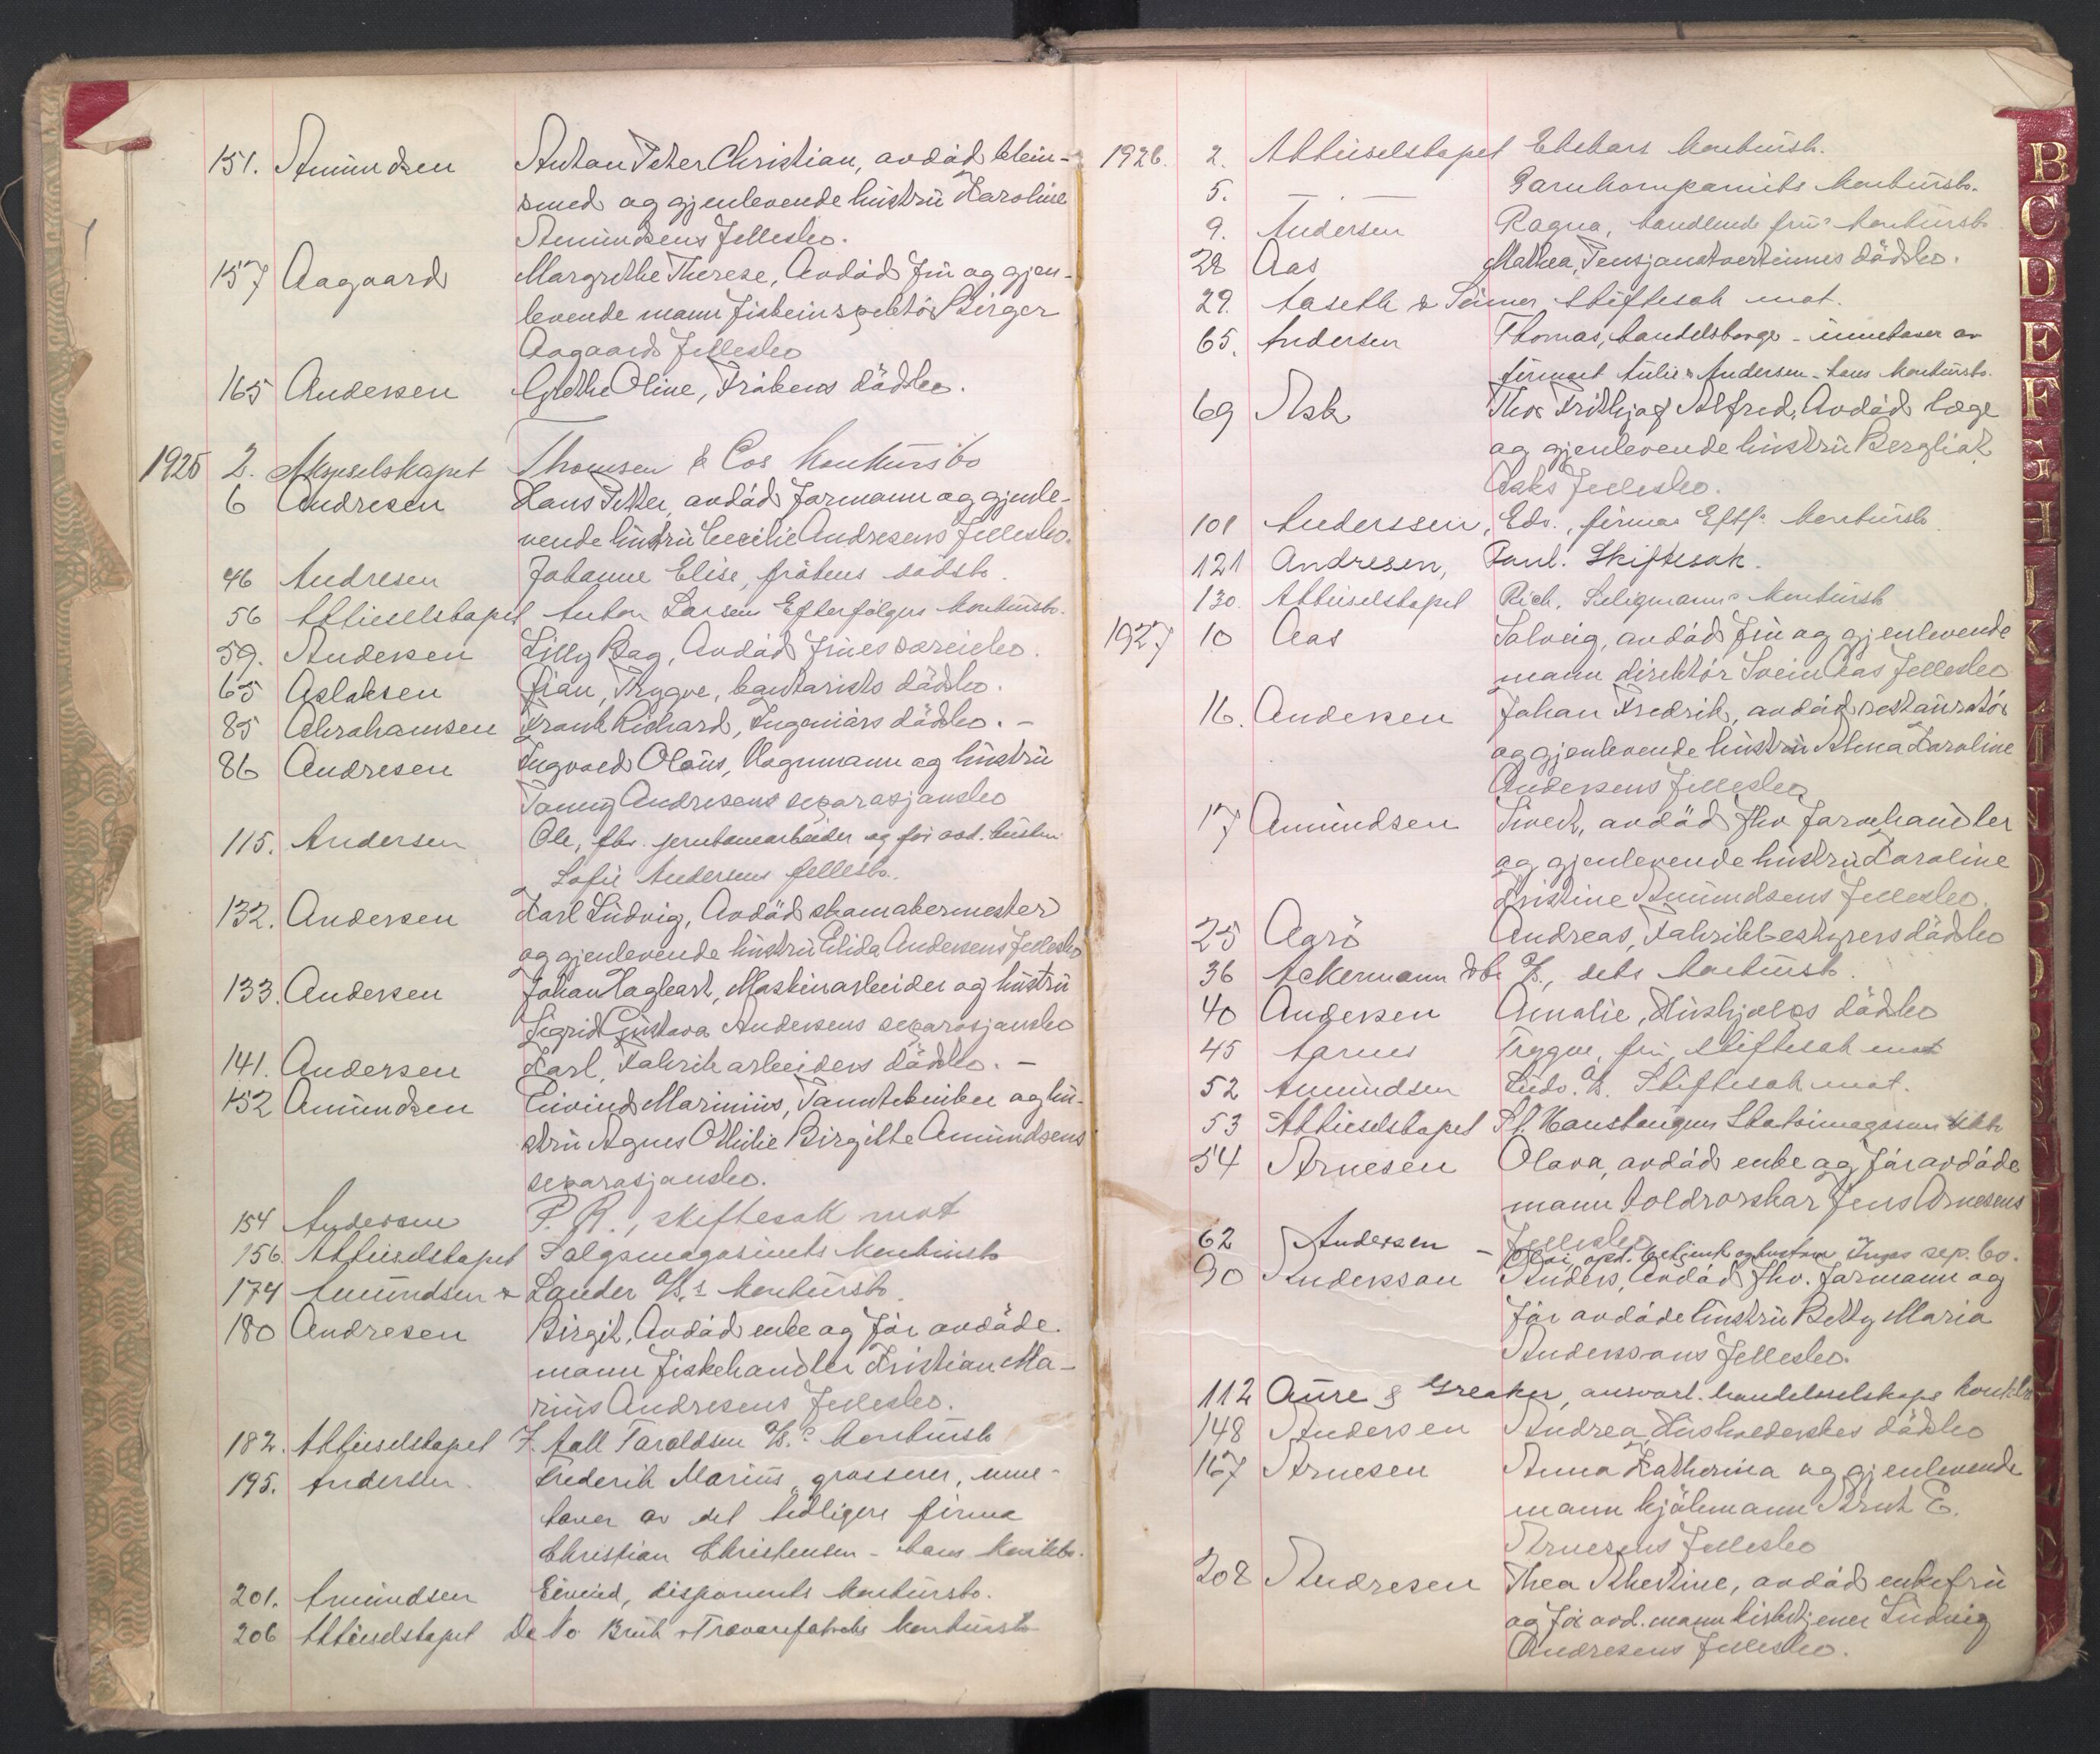 151. Amundsen Anton Peter Christian, avdød klein-
smed og gjenlevende hustru Karoline
Amundsens fellesbo.
157 Aagaard Margrethe Therese, Avdød fru og gjen-
levende mann fiskeinspektør Birger
Aagaards fellesbo
165 Andersen Grethe Oline, Frøkens dødsbo.
1925 2. Aksjeselskapet Thomsen & Cos konkursbo
6 Andresen Hans Petter, avdød formann og gjenle-
vende hustru Cecilie Andresens fellesbo.
46 Andresen Johanne Elise, frøkens dødsbo.
56 Aktieselskapet Anton Larsen Efterfølgers konkursbo.
59. Andersen Lilly Bag, Avdød frues særeiebo.
65 Aslaksen Trygve, kontorists dødsbo.
85 Abrahamsen Frank Richard, Ingeniørs dødsbo. -
86 Andresen Ingvald Olaus, Vognmann og hustru
Fanny Andresens separasjonsbo
115. Andersen Ole, fhv. jernbanearbeider og før avd. hustru
Sofie Andersens fellesbo.
132. Andersen Karl Ludvig, Avdød skomakermester
og gjenlevende hustru Elida Andersens fellesbo
133. Andersen Johan Hagbart, Maskinarbeider og hustru
Sigrid Gustava Andersens separasjonsbo
141. Andersen Karl, Fabrikarbeiders dødsbo. -
152 Amundsen Eivind Marinius, Tanntekniker og hu-
stru Agnes Othilie Birgitte Amundsens
separasjonsbo.
154 Andersen P. R., skiftesak mot
156. Aktieselskapet Salgsmagasinets konkursbo
174 Amundsen & Lander A/S.s konkursbo.
180 Andresen Birgit, Avdød enke og før avdøde
mann fiskehandler Kristian Ma-
rius Andresens fellesbo.
182. Aktieselskapet J. Aall Taraldsen A/S.s konkursbo
195. Andersen. Frederik Marius, grosserer, inne-
haver av det tidligere firma
Christian Christensen - hans konkbo.
201. Amundsen Eivind, disponents konkursbo.
206 Aktieselskapet De No Bruk & Trævarefabriks konkursbo
1926. 2. Aktieselskapet Ekekars konkursb.
5. — — Garnkompaniets konkursbo.
9. Andersen Ragna, handlende frus konkursbo
28 Aas Mathea, Pensjonatvertinnes dødsbo.
29. Aaseth & Seimer, skiftesak mot.
65. Andersen Thomas, handelsborger - innehaver av
firmaet Aulie & Andersen - hans konkursbo.
69 Ask Thor Frithjof Alfred, Avdød læge
og gjenlevende hustru Bergliot
Asks fellesbo.
101 Anderssen, Edv., firmas Eftf.s konkursbo
121 Andresen, Paul. Skiftesak.
130. Aktieselskapet Rich. Seligmanns konkursb
1927 10 Aas Solveig, avdød fru og gjenlevende
mann direktør Svein Aas fellesbo
16. Andersen Johan Fredrik, avdød restauratør
og gjenlevende hustru Alma Karoline
Andersens fellesbo
17 Amundsen Sivert, avdød fhv farvehandler
og gjenlevende hustru Karoline
Kristine Amundsens fellesbo.
25 Agrö Andreas, Fabrikbestyrers dødsbo
36 Ackermann A/S., dets konkursb.
40 Andersen Amalie, Hushjelps dødsbo
45 Aarnes Trygve, fru, skiftesak mot
52 Amundsen Ludv. A/S. Skiftesak mot.
53 Aktieselskapet St. Hanshaugen Skotøimagasin
54 Arnesen Olava, avdød enke og før avdøde
mann toldrorskar Jens Arnesens
fellesbo
62 Andersen - Olai, opd. betjent og hustru Ingas sep. bo.
90 Andersson Anders, Avdød fhv. formann og
før avdøde hustru Betty Maria
Anderssons fellesbo.
112 Aure & Greaker, ansvarl. handelsselskaps konkbo
148 Andersen Andrea, Husholderskes dødsbo
167 Arnesen Anna Katherina og gjenlevende
mann kjølmann Arnt E.
Arnesens fellesbo
208 Andresen Thea Albertine, avdød enkefru
og før avd. mann kirketjener Ludvig
Andresens fellesbo.
B
C
D
E
F
G
H
J
K